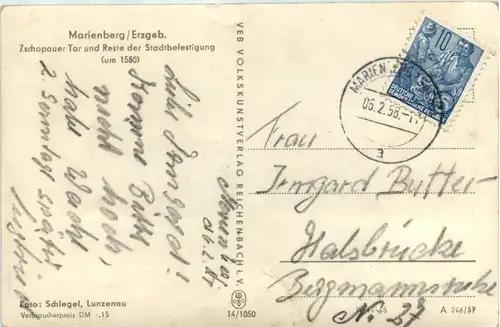 Marienberg/Erzgeb.
Zschopauer Tor und Reste der Stadtbefestigung
(um 1550)
Marienberg
d. 6. 2. 58
Liebe Irmgard!
Komme bitte
nicht hoch,
habe Wache
2. Sonntag später
VEB VOLKSKUNSTVERLAG REICHENBACH i. V.
10
DEUTSCHE
DEMOKRATISCHE
MARIENBERG
06.2.58.-7
a
Frau
Irmgard Butter-
Halsbrücke
Bergmannstraße
No. 27
Foto: Schlegel, Lunzenau
Verbraucherpreis DM -.15
14/1050
A 246/57